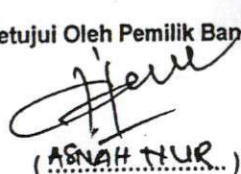 etujui Oleh Pemilik Ban
(ASNAH NUR)